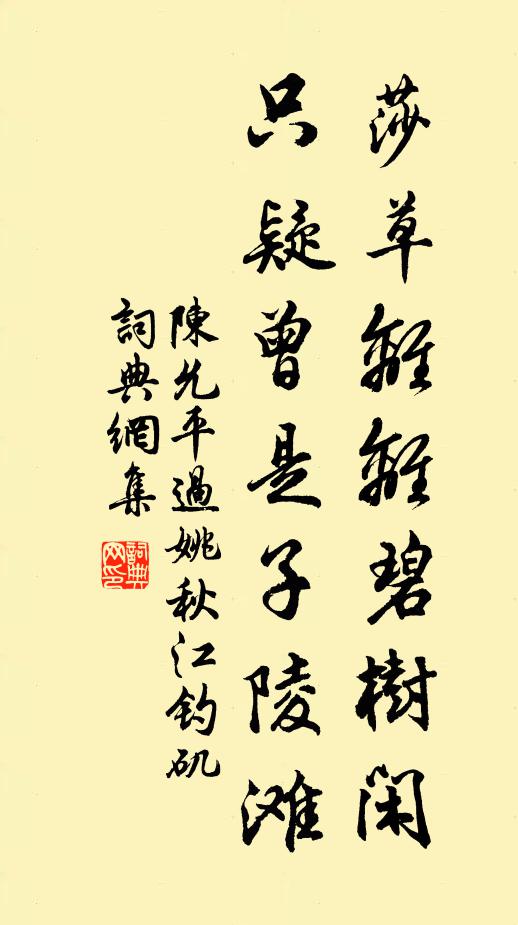 莎草離離碧樹閑
只疑曾是子陵滩
陳允平過姚秋江钓矶
詞典網集
詞典網印